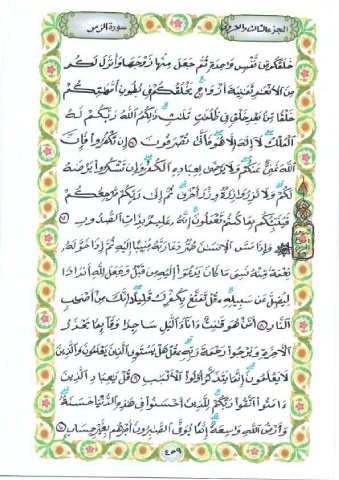 سورة الزمر
الجزء الثالث والعشرون
خَلَقَكُم مِّن نَّفْسٍ وَٰحِدَةٍ ثُمَّ جَعَلَ مِنْهَا زَوْجَهَا وَأَنزَلَ لَكُم
مِّنَ ٱلْأَنْعَٰمِ ثَمَٰنِيَةَ أَزْوَٰجٍ يَخْلُقُكُمْ فِى بُطُونِ أُمَّهَٰتِكُمْ
خَلْقًا مِّنۢ بَعْدِ خَلْقٍ فِى ظُلُمَٰتٍ ثَلَٰثٍ ذَٰلِكُمُ ٱللَّهُ رَبُّكُمْ لَهُ
ٱلْمُلْكُ لَآ إِلَٰهَ إِلَّا هُوَ فَأَنَّىٰ تُصْرَفُونَ ٦ إِن تَكْفُرُوا۟ فَإِنَّ
ٱللَّهَ غَنِىٌّ عَنكُمْ وَلَا يَرْضَىٰ لِعِبَادِهِ ٱلْكُفْرَ وَإِن تَشْكُرُوا۟ يَرْضَهُ
لَكُمْ وَلَا تَزِرُ وَازِرَةٌ وِزْرَ أُخْرَىٰ ثُمَّ إِلَىٰ رَبِّكُم مَّرْجِعُكُمْ
فَيُنَبِّئُكُم بِمَا كُنتُمْ تَعْمَلُونَ إِنَّهُۥ عَلِيمٌۢ بِذَاتِ ٱلصُّدُورِ ٧
۞ وَإِذَا مَسَّ ٱلْإِنسَٰنَ ضُرٌّ دَعَا رَبَّهُۥ مُنِيبًا إِلَيْهِ ثُمَّ إِذَا خَوَّلَهُۥ
نِعْمَةً مِّنْهُ نَسِىَ مَا كَانَ يَدْعُوٓا۟ إِلَيْهِ مِن قَبْلُ وَجَعَلَ لِلَّهِ أَندَادًا
لِّيُضِلَّ عَن سَبِيلِهِۦ قُلْ تَمَتَّعْ بِكُفْرِكَ قَلِيلًا إِنَّكَ مِنْ أَصْحَٰبِ
ٱلنَّارِ ٨ أَمَّنْ هُوَ قَٰنِتٌ ءَانَآءَ ٱلَّيْلِ سَاجِدًا وَقَآئِمًا يَحْذَرُ
ٱلْءَاخِرَةَ وَيَرْجُوا۟ رَحْمَةَ رَبِّهِۦ قُلْ هَلْ يَسْتَوِى ٱلَّذِينَ يَعْلَمُونَ وَٱلَّذِينَ
لَا يَعْلَمُونَ إِنَّمَا يَتَذَكَّرُ أُو۟لُوا۟ ٱلْأَلْبَٰبِ ٩ قُلْ يَٰعِبَادِ ٱلَّذِينَ
ءَامَنُوا۟ ٱتَّقُوا۟ رَبَّكُمْ لِلَّذِينَ أَحْسَنُوا۟ فِى هَٰذِهِ ٱلدُّنْيَا حَسَنَةٌ
وَأَرْضُ ٱللَّهِ وَٰسِعَةٌ إِنَّمَا يُوَفَّى ٱلصَّٰبِرُونَ أَجْرَهُم بِغَيْرِ حِسَابٍ ١٠
٤٥٩